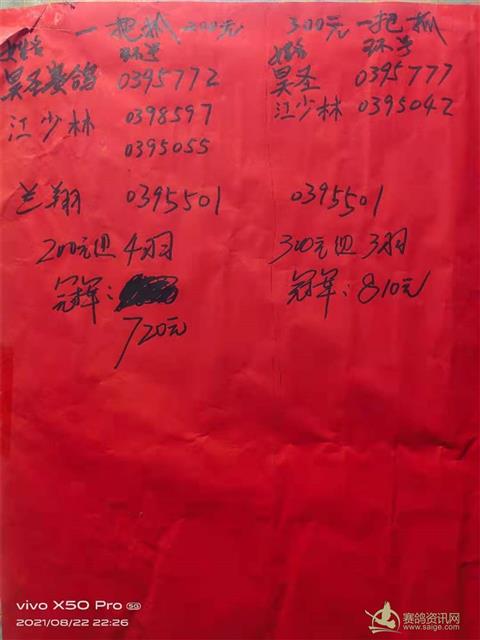 一把抓 200元
姓名 环号
昊圣赛鸽 0395772
江少林 0398597
0395055
兰翔 0395501
200元组 4羽
冠军:
720元
300元 一把抓
姓名 环号
昊圣 0395777
江少林 0395042
0395501
300元组 3羽
冠军:810元
vivo X50 Pro 5G
2021/08/22 22:26
赛鸽资讯网
www.saige.com